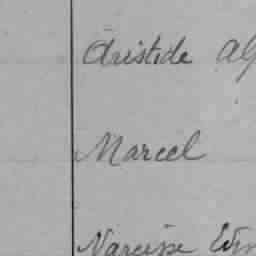 Aristide
Marcel
Narcisse